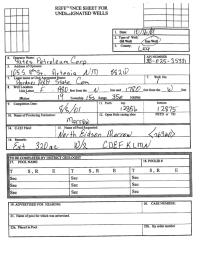 REFERENCE SHEET FOR
UNDESIGNATED WELLS
1. Date:
2. Type of Well:
3. County:
Lea
4. Operator Name
Yates Petroleum Corp.
API NUMBER
30-025-35531
5. Address of Operator
105 S 4th St. Artesia NM 88210
6. Lease name or Unit Agreement Name
State Com
7. Well No.
8. Well Location
Unit Letter F 1980 feet from the N line and feet from the W line
Section 19 Township 15s Range 35e NMPM
9. Completion Date
11. Perfs top bottom
10. Name of Producing Formation
Morrow
12. Open Hole casing shoe PBTD or TD
13. C-123 Filed
14. Name of Pool Requested
North Eidson Morrow
15. Remarks
Ext 320ac W/2 CDEFKLMN
TO BE COMPLETED BY DISTRICT GEOLOGIST
17. POOL NAME
18. POOL ID #
T S, R E T S, R E T S, R E
Sec Sec Sec
Sec Sec Sec
Sec Sec Sec
Sec Sec Sec
19. ADVERTISED FOR HEARING
20. CASE NUMBER:
21. Name of pool for which was advertised.
22a. Placed in Pool
22b. By order number